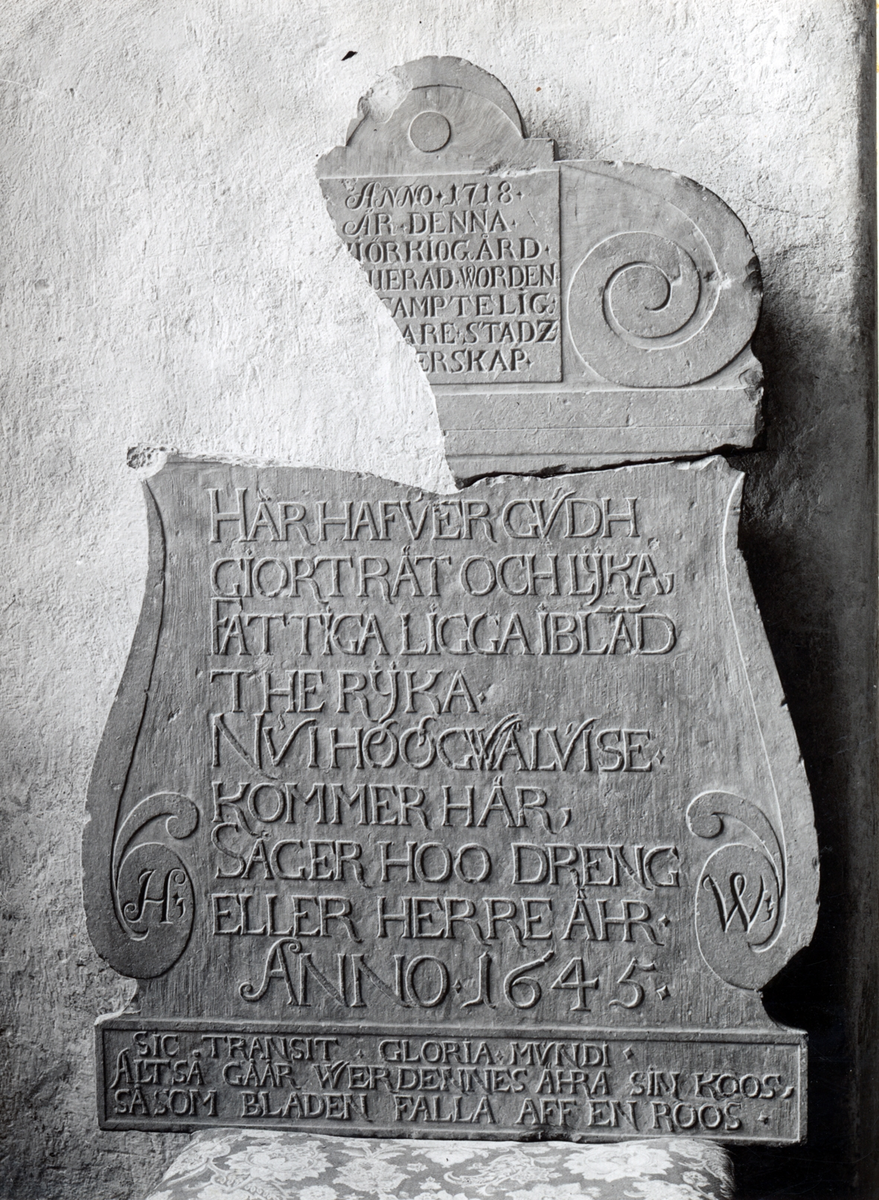 ANNO · 1718 ·
ÄR · DENNA ·
KIÖRKIOGÅRD ·
UERAD · WORDEN ·
AMPTELIG:
ARE · STADZ
ERSKAP ·
HÄR HAFVER GVDH
GIORT RÄT OCH LŸKA,
FATTIGA LIGGA IBLAD
THE RŸKA ·
NV I HÖÖGWÄLVISE ·
KOMMER HÄR,
SÄGER HOO DRENG
ELLER HERRE ÄHR ·
ANNO · 1645 ·
H:
W:
SIC · TRANSIT · GLORIA · MVNDI ·
ALTSÅ GÅÅR WERDENNES ÄHRA SIN KOOS,
SÅSOM BLADEN FALLA AFF EN ROOS ·